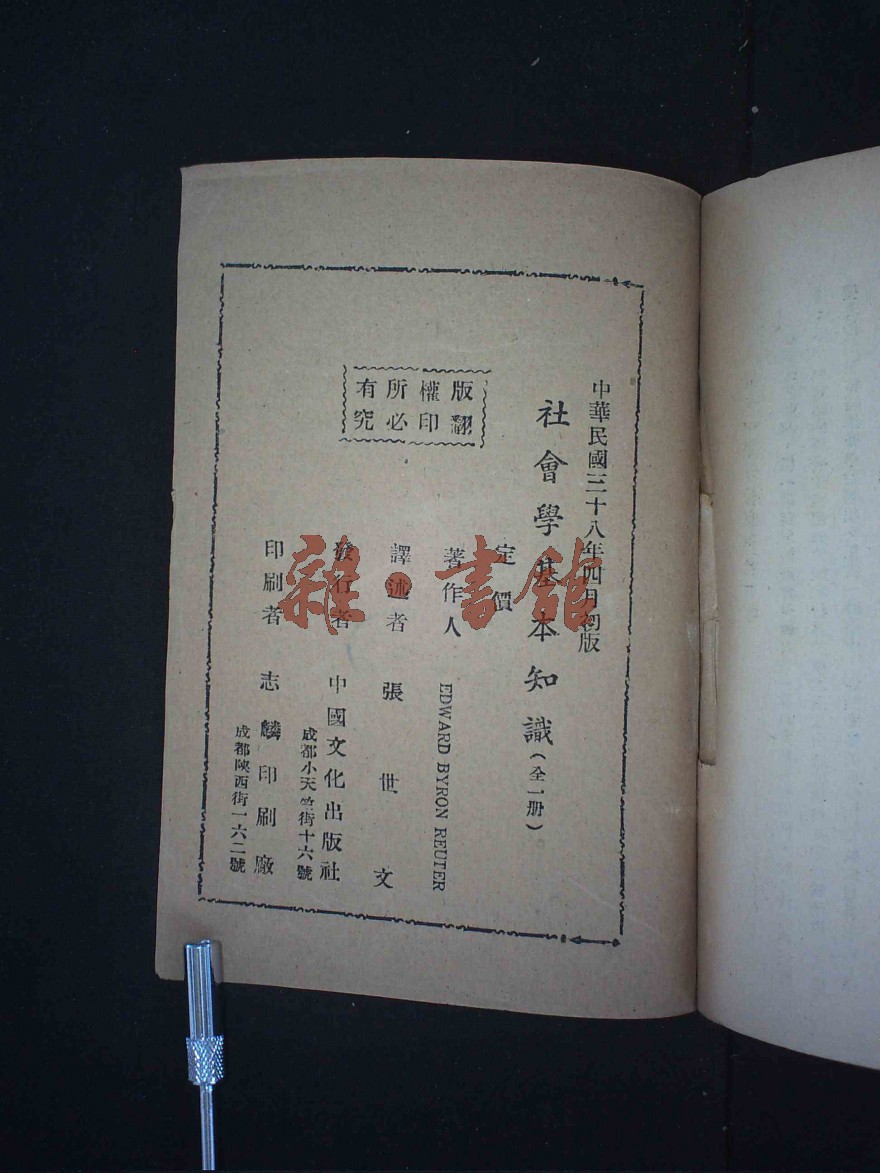 中華民國三十八年四月初版
社會學基本知識(全一册)
定價
著作人 EDWARD BYRON REUTER
譯述者 張世文
發行者 中國文化出版社
成都小天竺街十六號
印刷者 志麟印刷廠
成都陝西街一六二號
版權所有
翻印必究
雜·書館